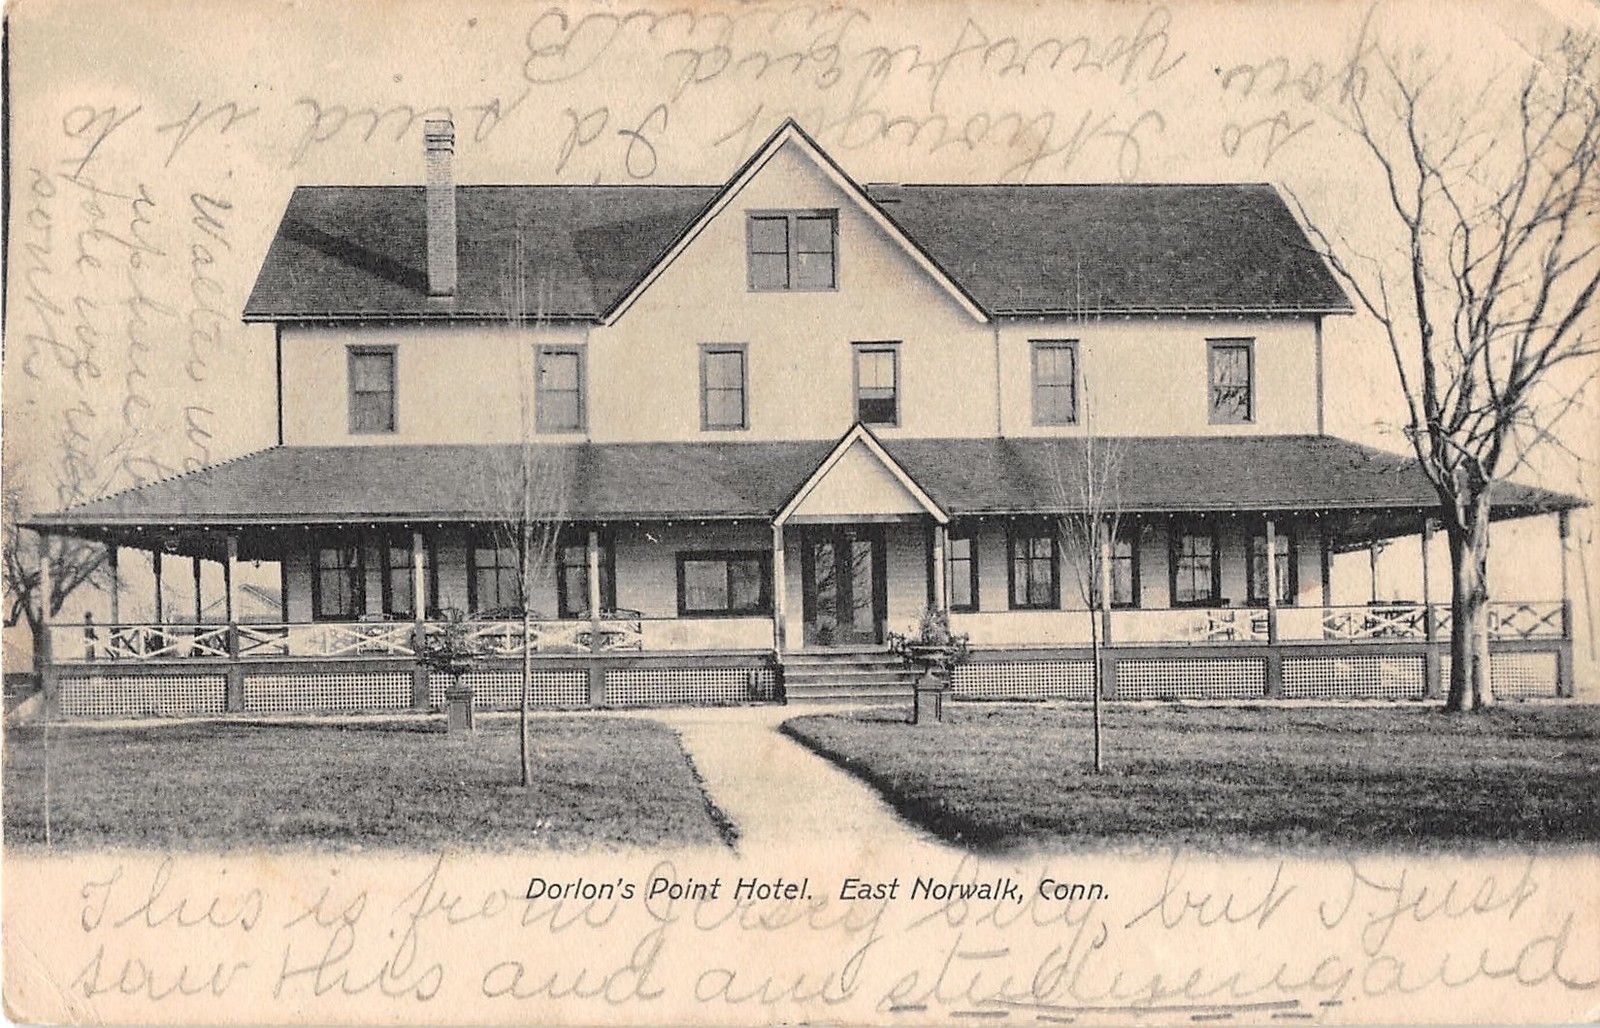 Dorlon's Point Hotel. East Norwalk, Conn.
This is from Jersey City, but I Just
saw this and am studying and
so thought I'd send it
you
yours friend
B
Walter was
up here to
to
sent to